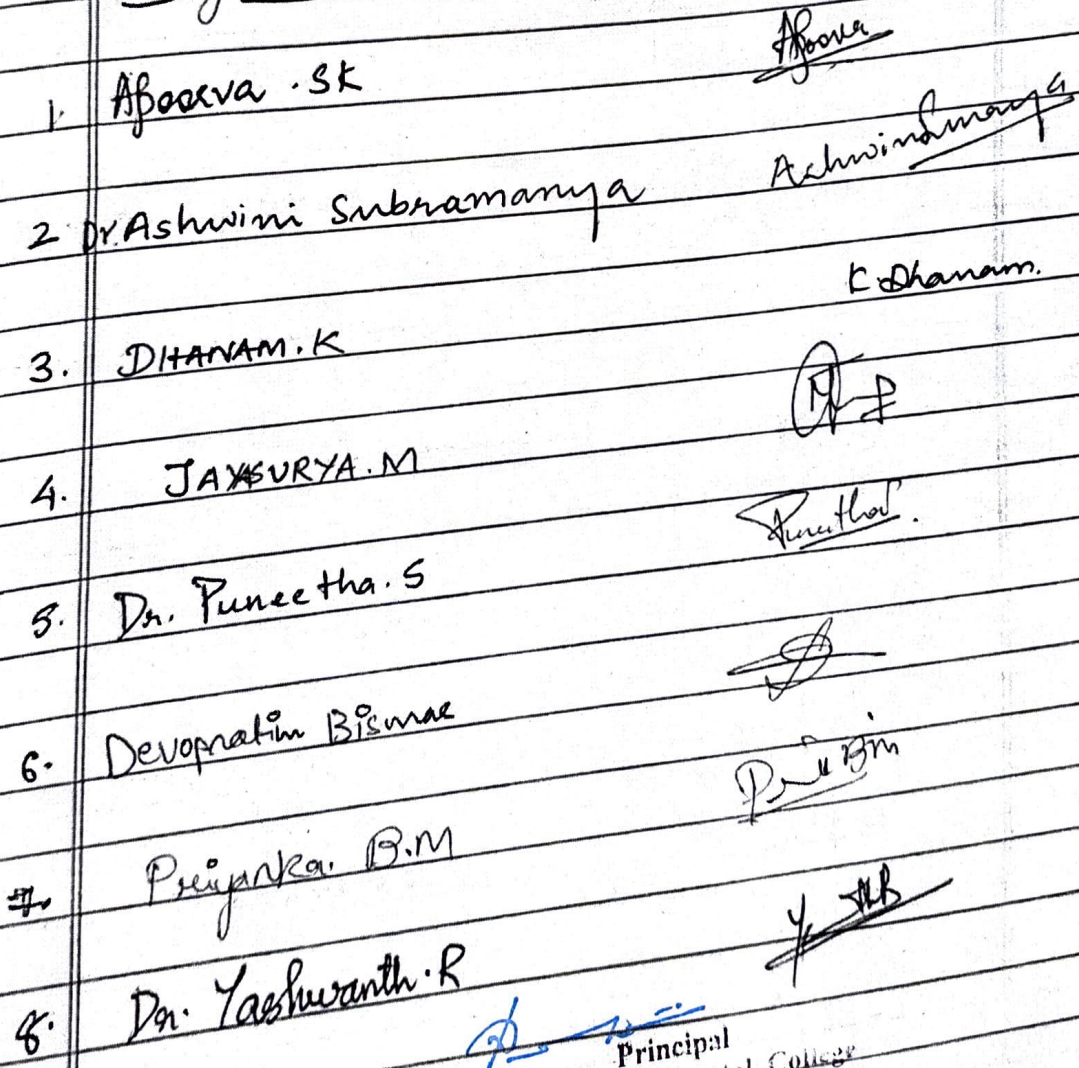 1. Apoorva .SK Apoorva
2 Dr. Ashwini Subramanya
3. DHANAM.K K.Dhanam.
4. JAYASURYA.M
5. Dr. Puneetha.S Puneetha
6. Devopratim
7. Priyanka. B.M
8. Dr. Yashwanth.R
Principal
College